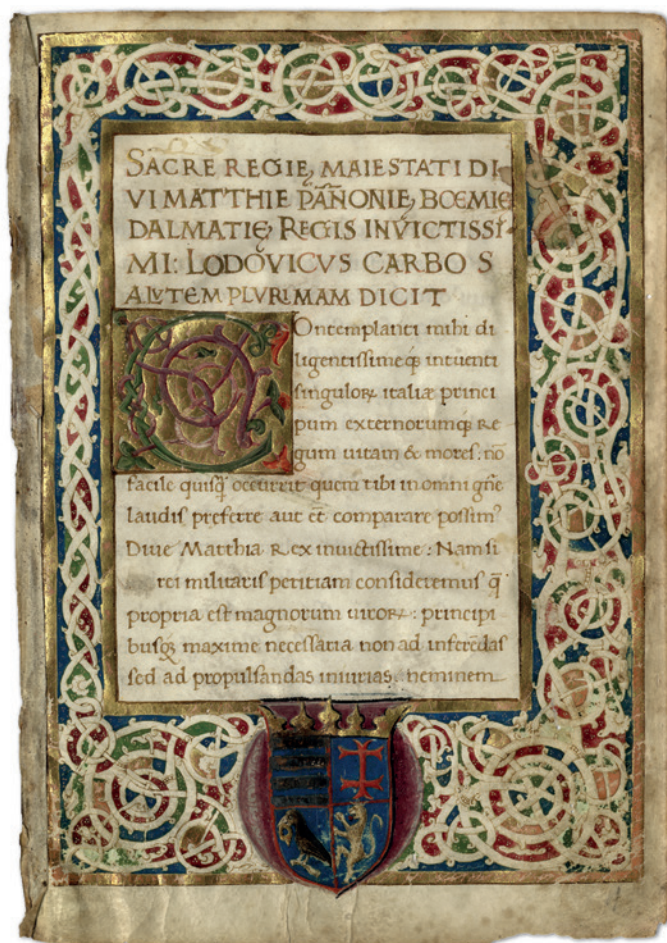 SACRE REGIĘ MAIESTATI DI
VI MATTHIE PAÑONIĘ BOEMIE
DALMATIĘ REGIS INVICTISSI
MI: LODOVICVS CARBO S
ALVTEM PLVRIMAM DICIT
Contemplanti mihi di
ligentissimeq̃ intuenti
singuloꝝ italiæ princi
pum externorumq̃ Re
gum uitam & mores: nō
facile quisq̃ occurrit quem tibi in omni gñe
laudis preferre aut et̄ comparare possim?
Diue Matthia Rex inuictissime: Nam si
rei militaris peritiam consideremus q̄
propria est magnorum uiroꝝ: principi
busqꝫ maxime necessaria non ad inferēdas
sed ad propulsandas iniurias: neminem